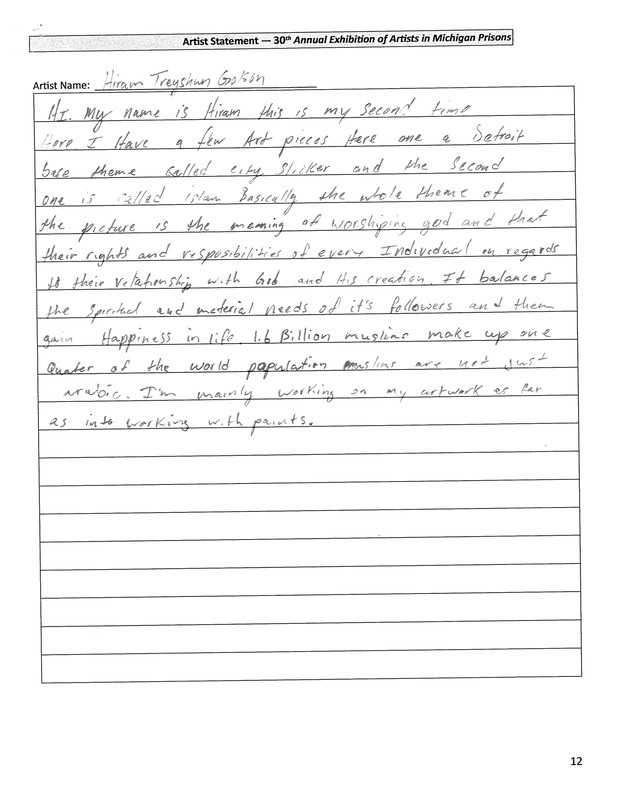 Artist Statement — 30th Annual Exhibition of Artists in Michigan Prisons
Artist Name: Hiram Treyshun Golson
HI. My name is Hiram this is my second time
Here I Have a few Art pieces Here one a Detroit
base theme called city slicker and the Second
one is called islam Basically the whole theme of
the picture is the meming of worshiping god and that
their rights and resposibilities of every Individual en regards
to their relationship with God and His creation. It balances
the Spiritual and material needs of it's followers and them
gain Happiness in life. 1.6 Billion muslims make up one
Quater of the world population muslims are not just
arabic. I'm mainly working on my artwork as far
as into working with paints.
12